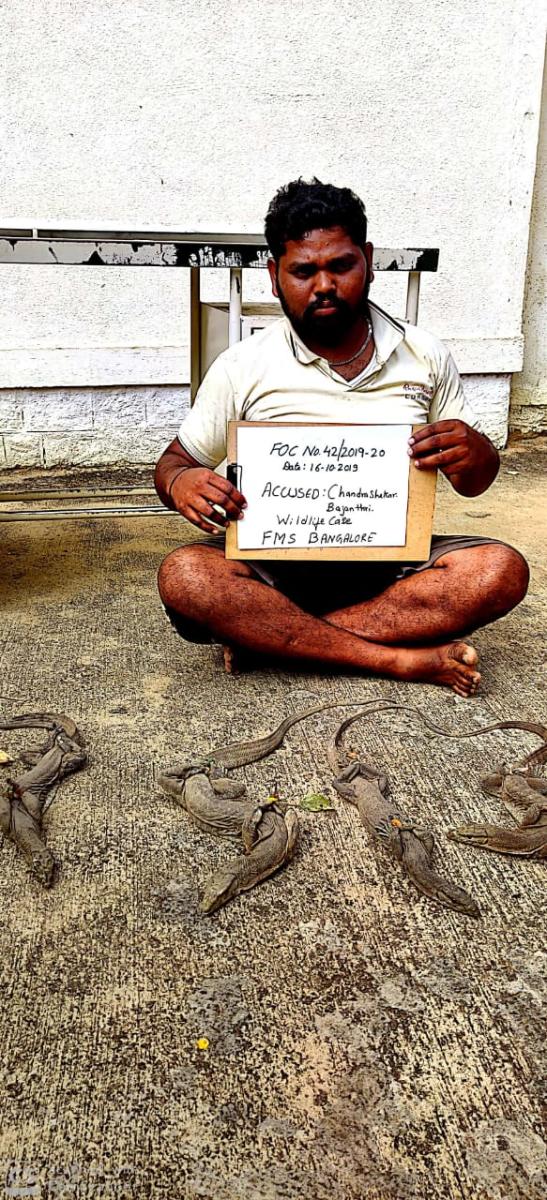 FOC No. 42/2019-20
Date: 16-10-2019
ACCUSED: Chandrashekar.
Bajanthri.
Wildlife Case
FMS BANGALORE